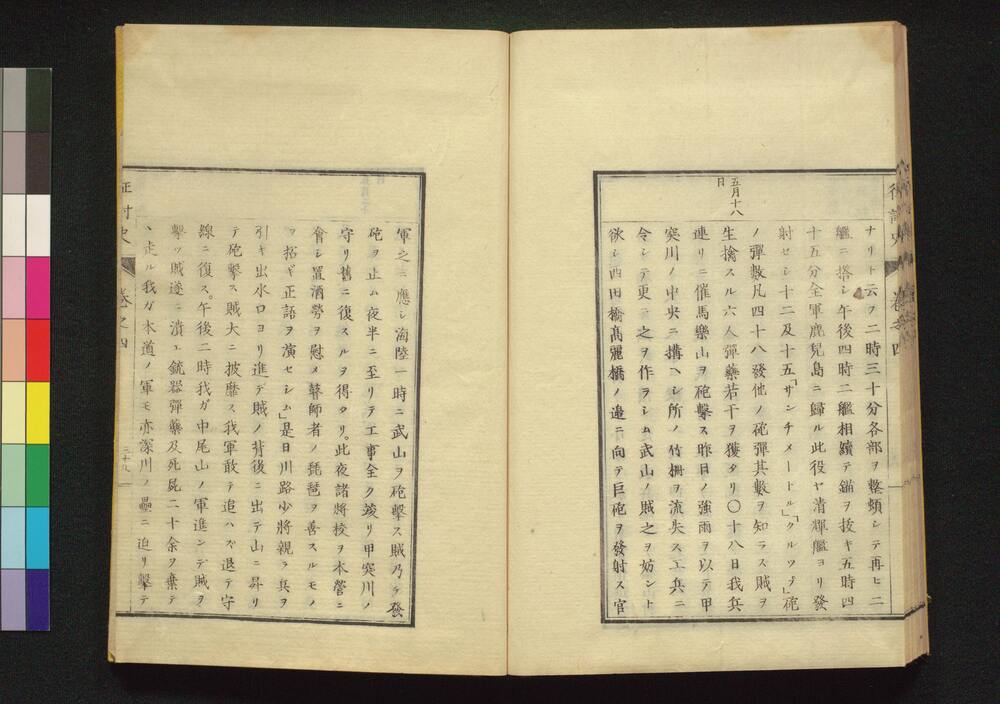 征討史 卷之四
ナリト云フ二時三十分各部ヲ整頓シテ再ヒ二
艦ニ搭シ午後四時二艦相續テ錨ヲ拔キ五時四
十五分全軍鹿兒島ニ歸ル此役ヤ清輝艦ヨリ發
射セシ十二及十五「サンチメートル」「クルツプ」砲
ノ彈數凡四十八發他ノ砲彈其數ヲ知ラス賊ヲ
生擒スル六人彈藥若干ヲ獲タリ〇十八日我兵
五月十八
日
連リニ催馬樂山ヲ砲擊ス昨日ノ強雨ヲ以テ甲
突川ノ中央ニ搆ヘシ所ノ竹柵ヲ流失ス工兵ニ
令シテ更ニ之ヲ作ラシム武山ノ賊之ヲ妨ント
欲シ西田橋髙麗橋ノ邉ニ向テ巨砲ヲ發射ス官
軍之ニ應シ海陸一時ニ武山ヲ砲擊ス賊乃チ發
砲ヲ止ム夜半ニ至リテ工事全ク竣リ甲突川ノ
守リ舊ニ復スルヲ得タリ。此夜諸將校ヲ本營ニ
會シ置酒勞ヲ慰メ瞽師者ノ琵琶ヲ善スルモノ
ヲ招キ正語ヲ演セシム」是日川路少將親ラ兵ヲ
引キ出水口ヨリ進テ賊ノ背後ニ出テ山ニ昇リ
テ砲擊ス賊大ニ披靡ス我軍敢テ追ハズ退テ守
線ニ復ス。午後二時我ガ中尾山ノ軍進ンデ賊ヲ
擊ツ賊遂ニ潰エ銃器彈藥及死屍二十余ヲ棄テ
ヽ走ル我ガ木道ノ軍モ亦深川ノ壘ニ迫リ擊テ
征討史 卷之四
三十八